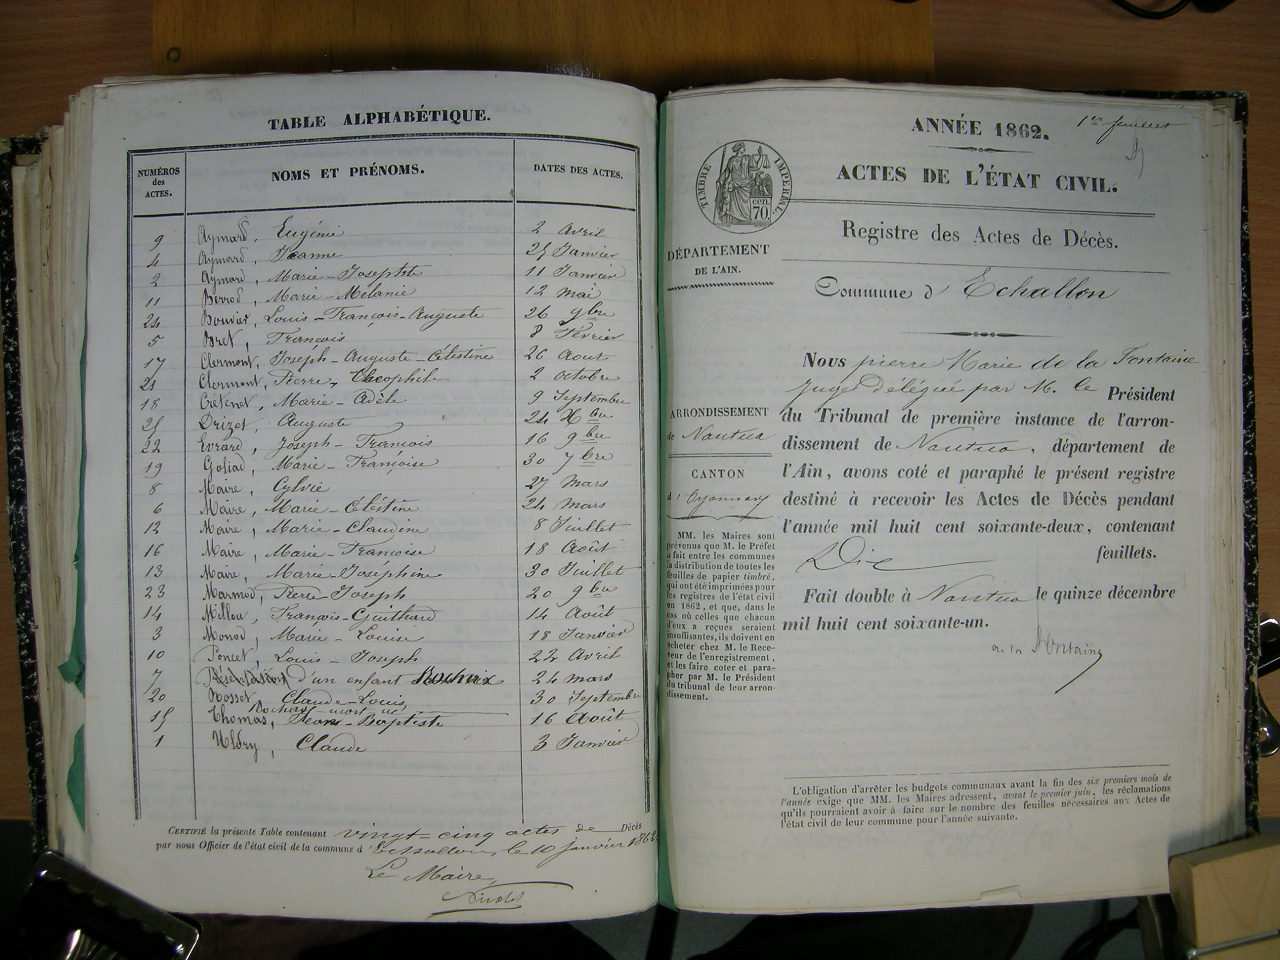 TABLE ALPHABÉTIQUE.
NUMÉROS des ACTES. NOMS ET PRÉNOMS. DATES DES ACTES.
9 Aymard, Eugénie 2 Avril
4 Aymard, Jeanne 25 Janvier
2 Aymard, Marie-Josephte 11 Janvier
11 Berrod, Marie-Mélanie 12 mai
24 Bouvier, Louis-François-Auguste 26 9bre
5 Bret, François 8 Février
17 Clermont, Joseph-Auguste-Célestine 26 Aout
21 Clermont, Pierre, Théophile 2 octobre
18 Crétenet, Marie-Adèle 9 Septembre
25 Drizet, Auguste 24 Xbre
22 Evrard, Joseph-François 16 9bre
19 Goliad, Marie-Françoise 30 7bre
8 Maire, Cylvie 27 mars
6 Maire, Marie-Célestine 24 mars
12 Maire, Marie-Claudine 8 Juillet
16 Maire, Marie-Françoise 18 Août
13 Maire, Marie-Joséphine 30 Juillet
23 Marmod, Pierre-Joseph 20 9bre
14 Millou, François-Guithard 14 Août
3 Monod, Marie-Louise 18 Janvier
10 Poncet, Louis-Joseph 22 Avril
7 d'un enfant Rochaix 26 mars
20 Rosset, Claude-Louis 30 Septembre
Rochaix mort né
15 Thomas, Jean-Baptiste 16 Août
1 Uldry, Claude 3 Janvier
CERTIFIÉ la présente Table contenant vingt-cinq actes de Décès
par nous Officier de l'état civil de la commune d'Echallon, le 10 janvier 1862
Le Maire,
ANNÉE 1862. 1er feuillet
ACTES DE L'ÉTAT CIVIL.
TIMBRE IMPÉRIAL.
70 cen.
Registre des Actes de Décès.
DÉPARTEMENT
DE L'AIN.
Commune d'Echallon
Nous pierre Marie de la Fontaine
Juge Délégué par M. le Président
du Tribunal de première instance de l'arron-
dissement de Nantua, département de
l'Ain, avons coté et paraphé le présent registre
destiné à recevoir les Actes de Décès pendant
l'année mil huit cent soixante-deux, contenant
Dix feuillets.
Fait double à Nantua le quinze décembre
mil huit cent soixante-un.
de la Fontaine
ARRONDISSEMENT
de Nantua
CANTON
d'Oyonnax
MM. les Maires sont
prévenus que M. le Préfet
a fait entre les communes
la distribution de toutes les
feuilles de papier timbré,
qui ont été imprimées pour
les registres de l'état civil
en 1862, et que, dans le
cas où celles que chacun
d'eux a reçues seraient
insuffisantes, ils doivent en
acheter chez M. le Rece-
veur de l'enregistrement,
et les faire coter et para-
pher par M. le Président
du tribunal de leur arron-
dissement.
L'obligation d'arrêter les budgets communaux avant la fin des six premiers mois de
l'année exige que MM. les Maires adressent, avant le premier juin, les réclamations
qu'ils pourraient avoir à faire sur le nombre des feuilles nécessaires aux Actes de
l'état civil de leur commune pour l'année suivante.